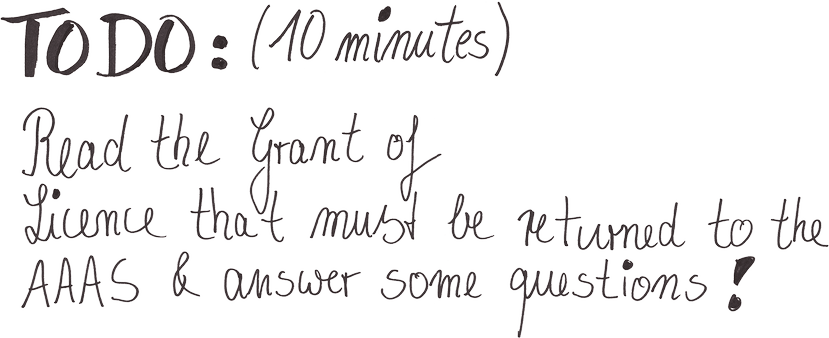 TODO: (10 minutes)
Read the Grant of
Licence that must be returned to the
AAAS & answer some questions!